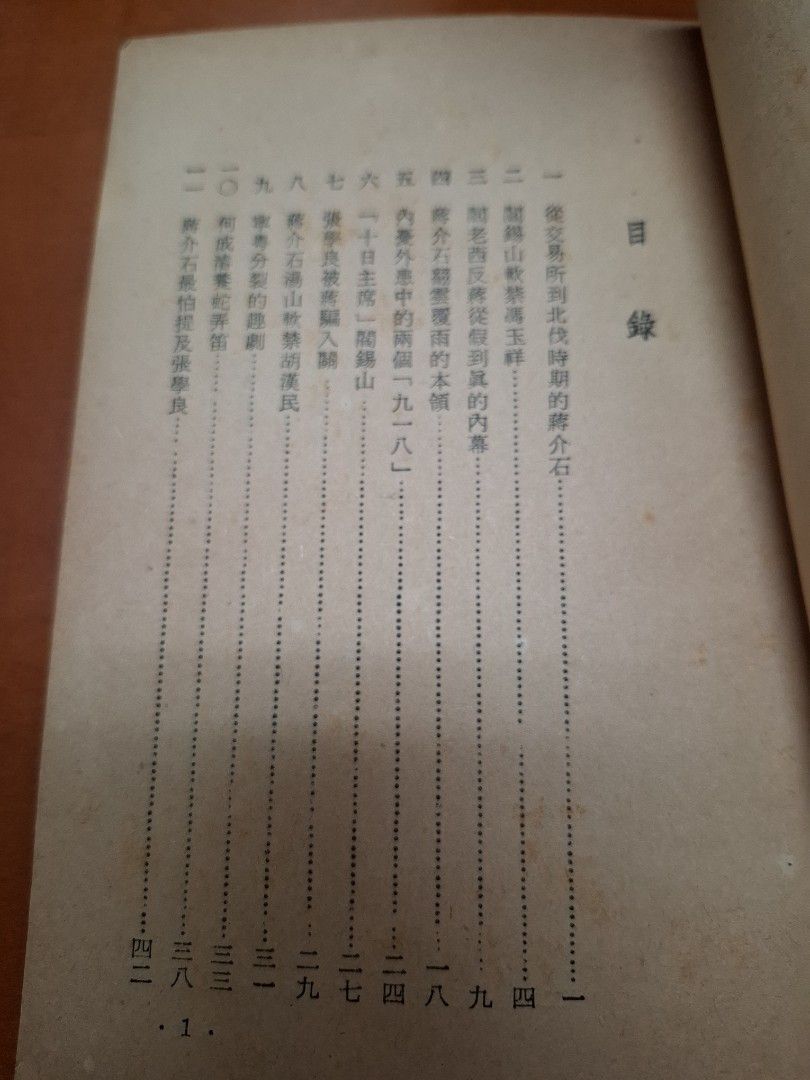 目錄
一 從交易所到北伐時期的蔣介石……一
二 閻錫山軟禁馮玉祥……四
三 閻老西反蔣從假到眞的內幕……九
四 蔣介石翻雲覆雨的本領……一八
五 內憂外患中的兩個「九一八」……二四
六 「十日主席」閻錫山……二七
七 張學良被蔣騙入關……二九
八 蔣介石湯山軟禁胡漢民……三一
九 寧粵分裂的趣劇……三三
一〇 何成濬養蛇弄笛……三八
一一 蔣介石最怕提及張學良……四二
· 1 ·